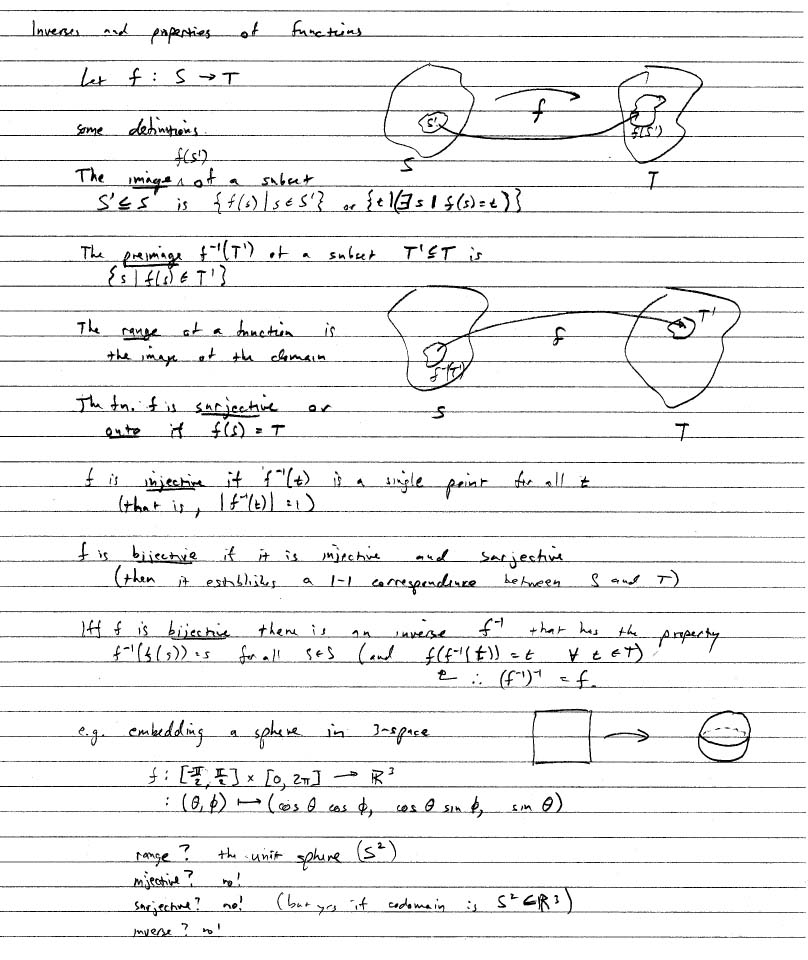 Inverses and properties of functions
Let f : S → T
f
S'
f(S')
S
T
some definitions:
f(S')
The image ^ of a subset
S' ⊆ S is {f(s) | s ∈ S'} or {t | (∃ s | f(s) = t)}
The preimage f⁻¹(T') of a subset T' ⊆ T is
{s | f(s) ∈ T'}
The range of a function is
the image of the domain
f
T'
f⁻¹(T')
S
T
The fn. f is surjective or
onto if f(S) = T
f is injective if f⁻¹(t) is a single point for all t
(that is, |f⁻¹(t)| = 1)
f is bijective if it is injective and surjective
(then it establishes a 1-1 correspondence between S and T)
Iff f is bijective there is an inverse f⁻¹ that has the property
f⁻¹(f(s)) = s for all s ∈ S (and f(f⁻¹(t)) = t ∀ t ∈ T)
∴ (f⁻¹)⁻¹ = f.
e.g. embedding a sphere in 3-space
f : [-π/2, π/2] × [0, 2π] → ℝ³
: (θ, φ) ↦ (cos θ cos φ, cos θ sin φ, sin θ)
range? the unit sphere (S²)
injective? no!
surjective? no! (but yes if codomain is S² ⊂ ℝ³)
inverse? no!